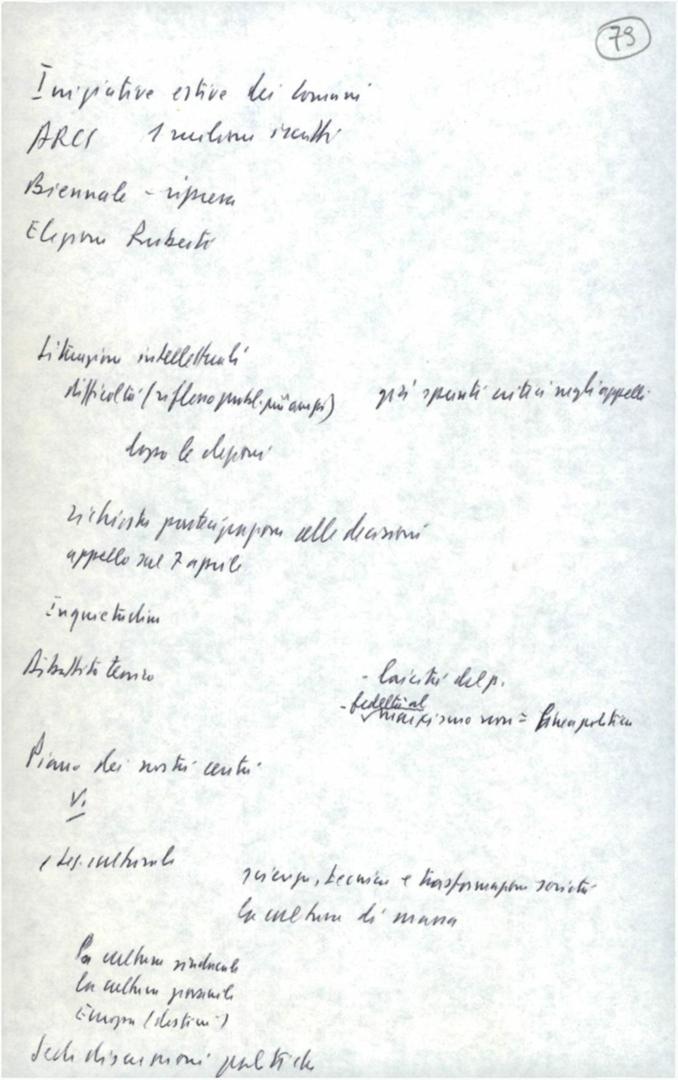 79
Iniziative estive dei comuni
ARCI 1 milione iscritti
Biennale - ripresa
Elezione Ruberti
Situazione intellettuali
difficoltà (riflesso probl. più ampi) già spunti critici negli appelli
dopo le elezioni
richiesta partecipazione alle decisioni
appello sul 7 aprile
Inquietudini
Dibattito teorico - laicità del p.
- fedeltà al marxismo non = linea politica
Piano dei nostri centri
V.
culturale scienza, tecnica e trasformazione società
la cultura di massa
La cultura sindacale
La cultura giovanile
Europa (destini)
Sedi discussioni politiche